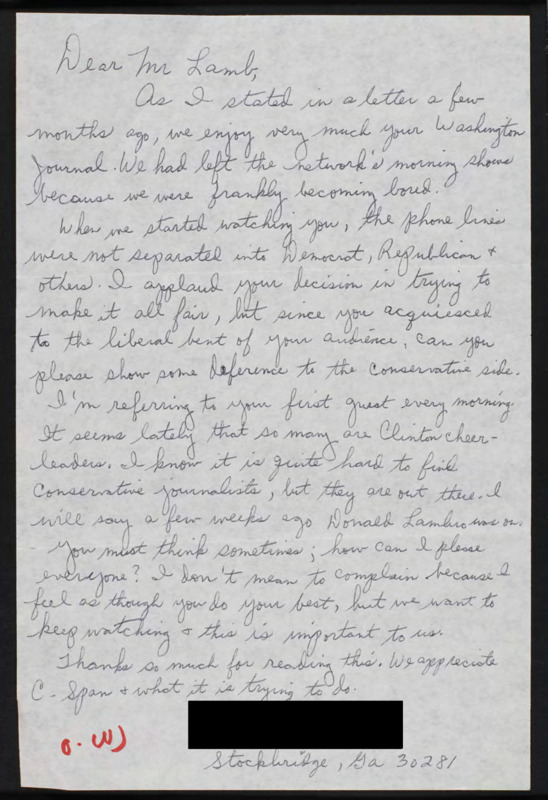 Dear Mr Lamb,
As I stated in a letter a few
months ago, we enjoy very much your Washington
Journal. We had left the network's morning shows
because we were frankly becoming bored.
When we started watching you, the phone lines
were not separated into Democrat, Republican +
others. I applaud your decision in trying to
make it all fair, but since you acquiesced
to the liberal bent of your audience, can you
please show some deference to the conservative side.
I'm referring to your first guest every morning.
It seems lately that so many are Clinton cheer-
leaders. I know it is quite hard to find
conservative journalists, but they are out there. I
will say a few weeks ago Donald Lambro was on.
You must think sometimes; how can I please
everyone? I don't mean to complain because I
feel as though you do your best, but we want to
keep watching + this is important to us.
Thanks so much for reading this. We appreciate
C-Span + what it is trying to do.
Stockbridge, Ga 30281